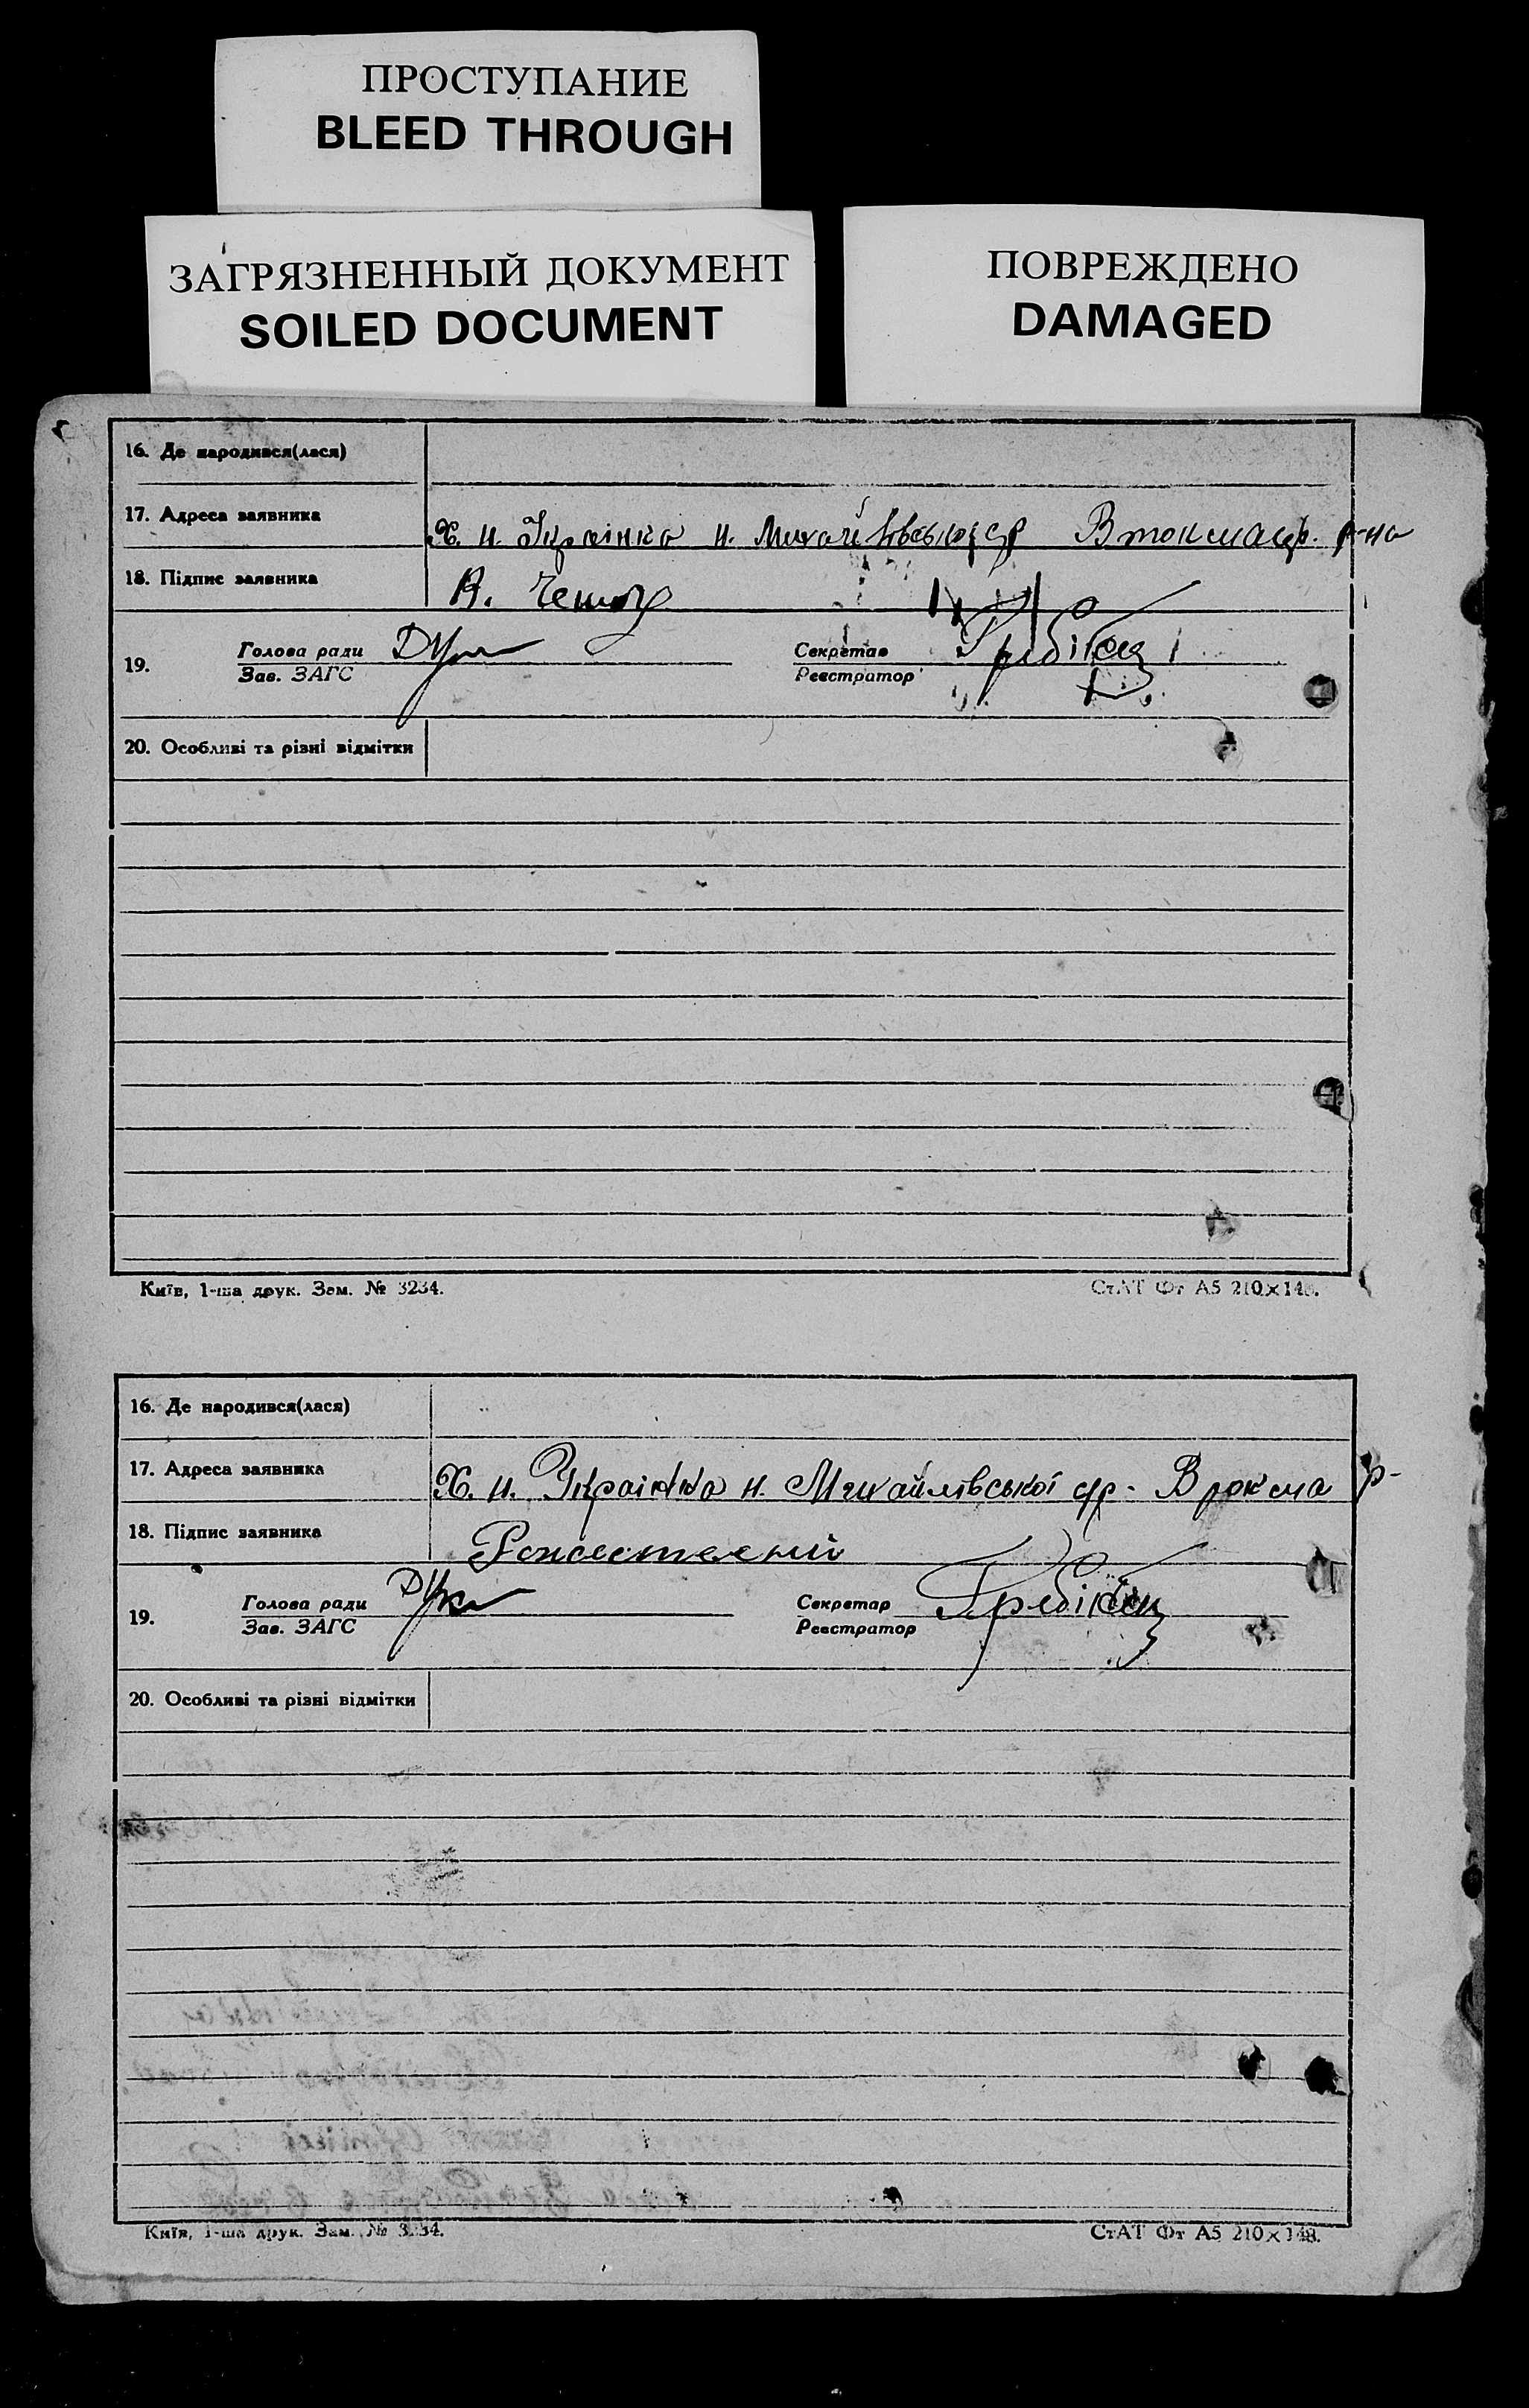 ПРОСТУПАНИЕ
BLEED THROUGH
ЗАГРЯЗНЕННЫЙ ДОКУМЕНТ
SOILED DOCUMENT
ПОВРЕЖДЕНО
DAMAGED
16. Де народився(лася)
17. Адреса заявника
Х. н. Українка н. р-на
18. Підпис заявника
В.
19. Голова ради Секретар
Зав. ЗАГС Реєстратор
20. Особливі та різні відмітки
Київ, 1-ша друк. Зам. № 3234. СтАТ Фт А5 210×148.
16. Де народився(лася)
17. Адреса заявника
Х. н. Українка н. Михайлівської с/р. р-
18. Підпис заявника
19. Голова ради Секретар
Зав. ЗАГС Реєстратор
20. Особливі та різні відмітки
Київ, 1-ша друк. Зам. № 3234. СтАТ Фт А5 210×148.